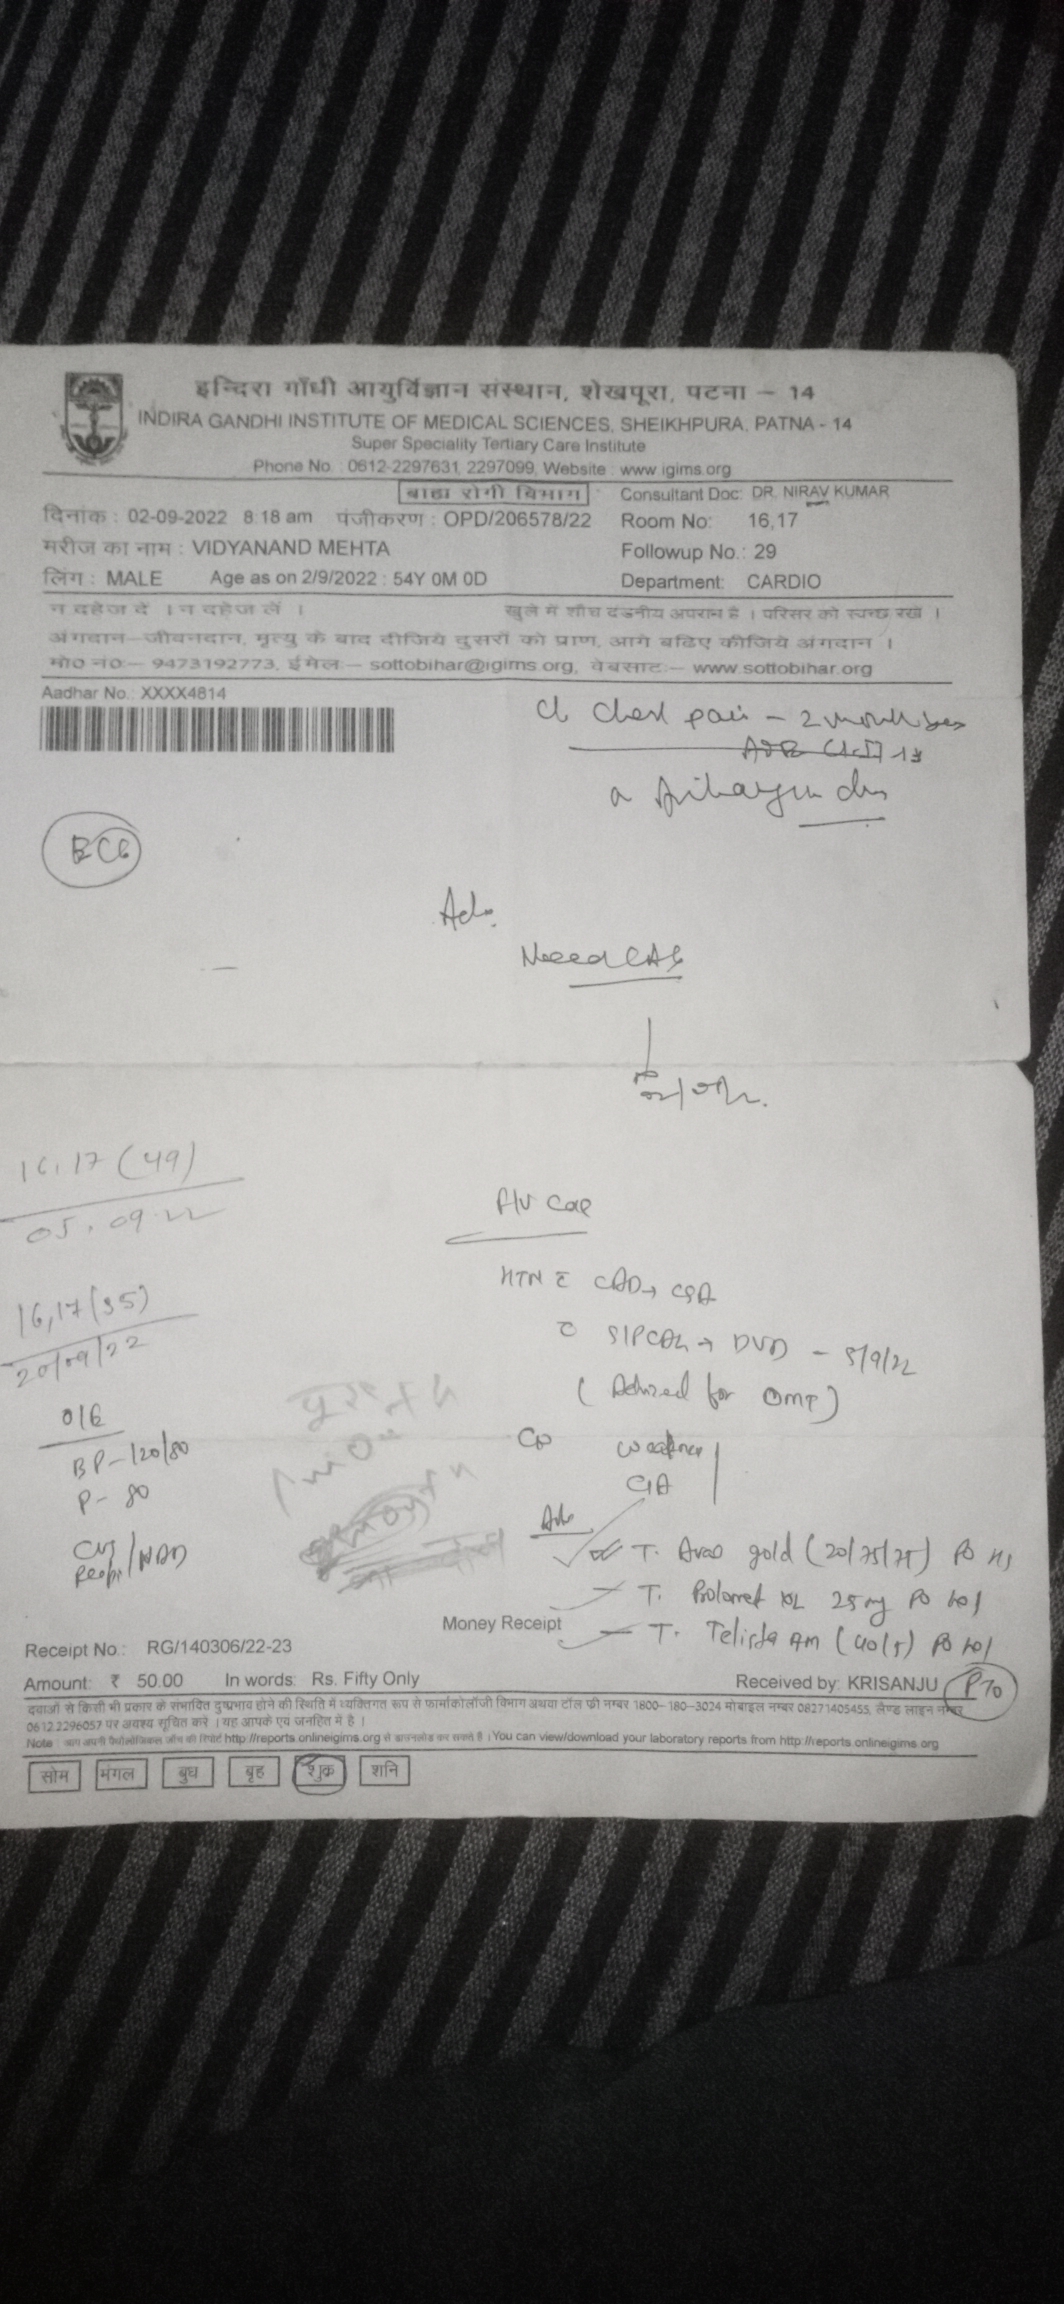 इन्दिरा गाँधी आयुर्विज्ञान संस्थान, शेखपूरा, पटना – 14
INDIRA GANDHI INSTITUTE OF MEDICAL SCIENCES, SHEIKHPURA, PATNA - 14
Super Speciality Tertiary Care Institute
Phone No : 0612-2297631, 2297099, Website : www.igims.org
बाह्य रोगी विभाग
Consultant Doc: DR. NIRAV KUMAR
दिनांक : 02-09-2022 8:18 am पंजीकरण : OPD/206578/22 Room No: 16,17
मरीज का नाम : VIDYANAND MEHTA Followup No.: 29
लिंग : MALE Age as on 2/9/2022 : 54Y 0M 0D Department: CARDIO
न दहेज दें । न दहेज लें । खुले में शौच दंडनीय अपराध है । परिसर को स्वच्छ रखें ।
अंगदान–जीवनदान, मृत्यु के बाद दीजिये दुसरों को प्राण, आगे बढिए कीजिये अंगदान ।
मो0 नं0:– 9473192773, ईमेल:– sottobihar@igims.org, वेबसाट:– www.sottobihar.org
Aadhar No.: XXXX4814
c/o chest pain – 2 month
ECG
Adv.
Need CAG
16,17 (49)
05.09.22
F/U case
HTN c̄ CAD → CSA
16,17 (35)
20/09/22
c̄ S/P CAG → DVD – 5/9/22
(Advised for OMT)
O/E
BP – 120/80
P – 80
CVS
Resp / NAD
C/o weakness
Adv
T. Avas gold (20/75/75) PO HS
T. Prolomet XL 25 mg PO
T. Telista AM (40/5) PO
Money Receipt
Receipt No.: RG/140306/22-23
Amount: ₹ 50.00 In words: Rs. Fifty Only Received by: KRISANJU
दवाओं से किसी भी प्रकार के संभावित दुष्प्रभाव होने की स्थिति में व्यक्तिगत रूप से फार्माकोलॉजी विभाग अथवा टॉल फ्री नम्बर 1800–180–3024 मोबाइल नम्बर 08271405455, लैण्ड लाइन नम्बर
0612.2296057 पर अवश्य सूचित करें । यह आपके एवं जनहित में है ।
Note : आप अपनी पैथोलॉजिकल जाँच की रिपोर्ट http://reports.onlineigims.org से डाउनलोड कर सकते हैं । You can view/download your laboratory reports from http://reports.onlineigims.org
सोम मंगल बुध बृह शुक्र शनि